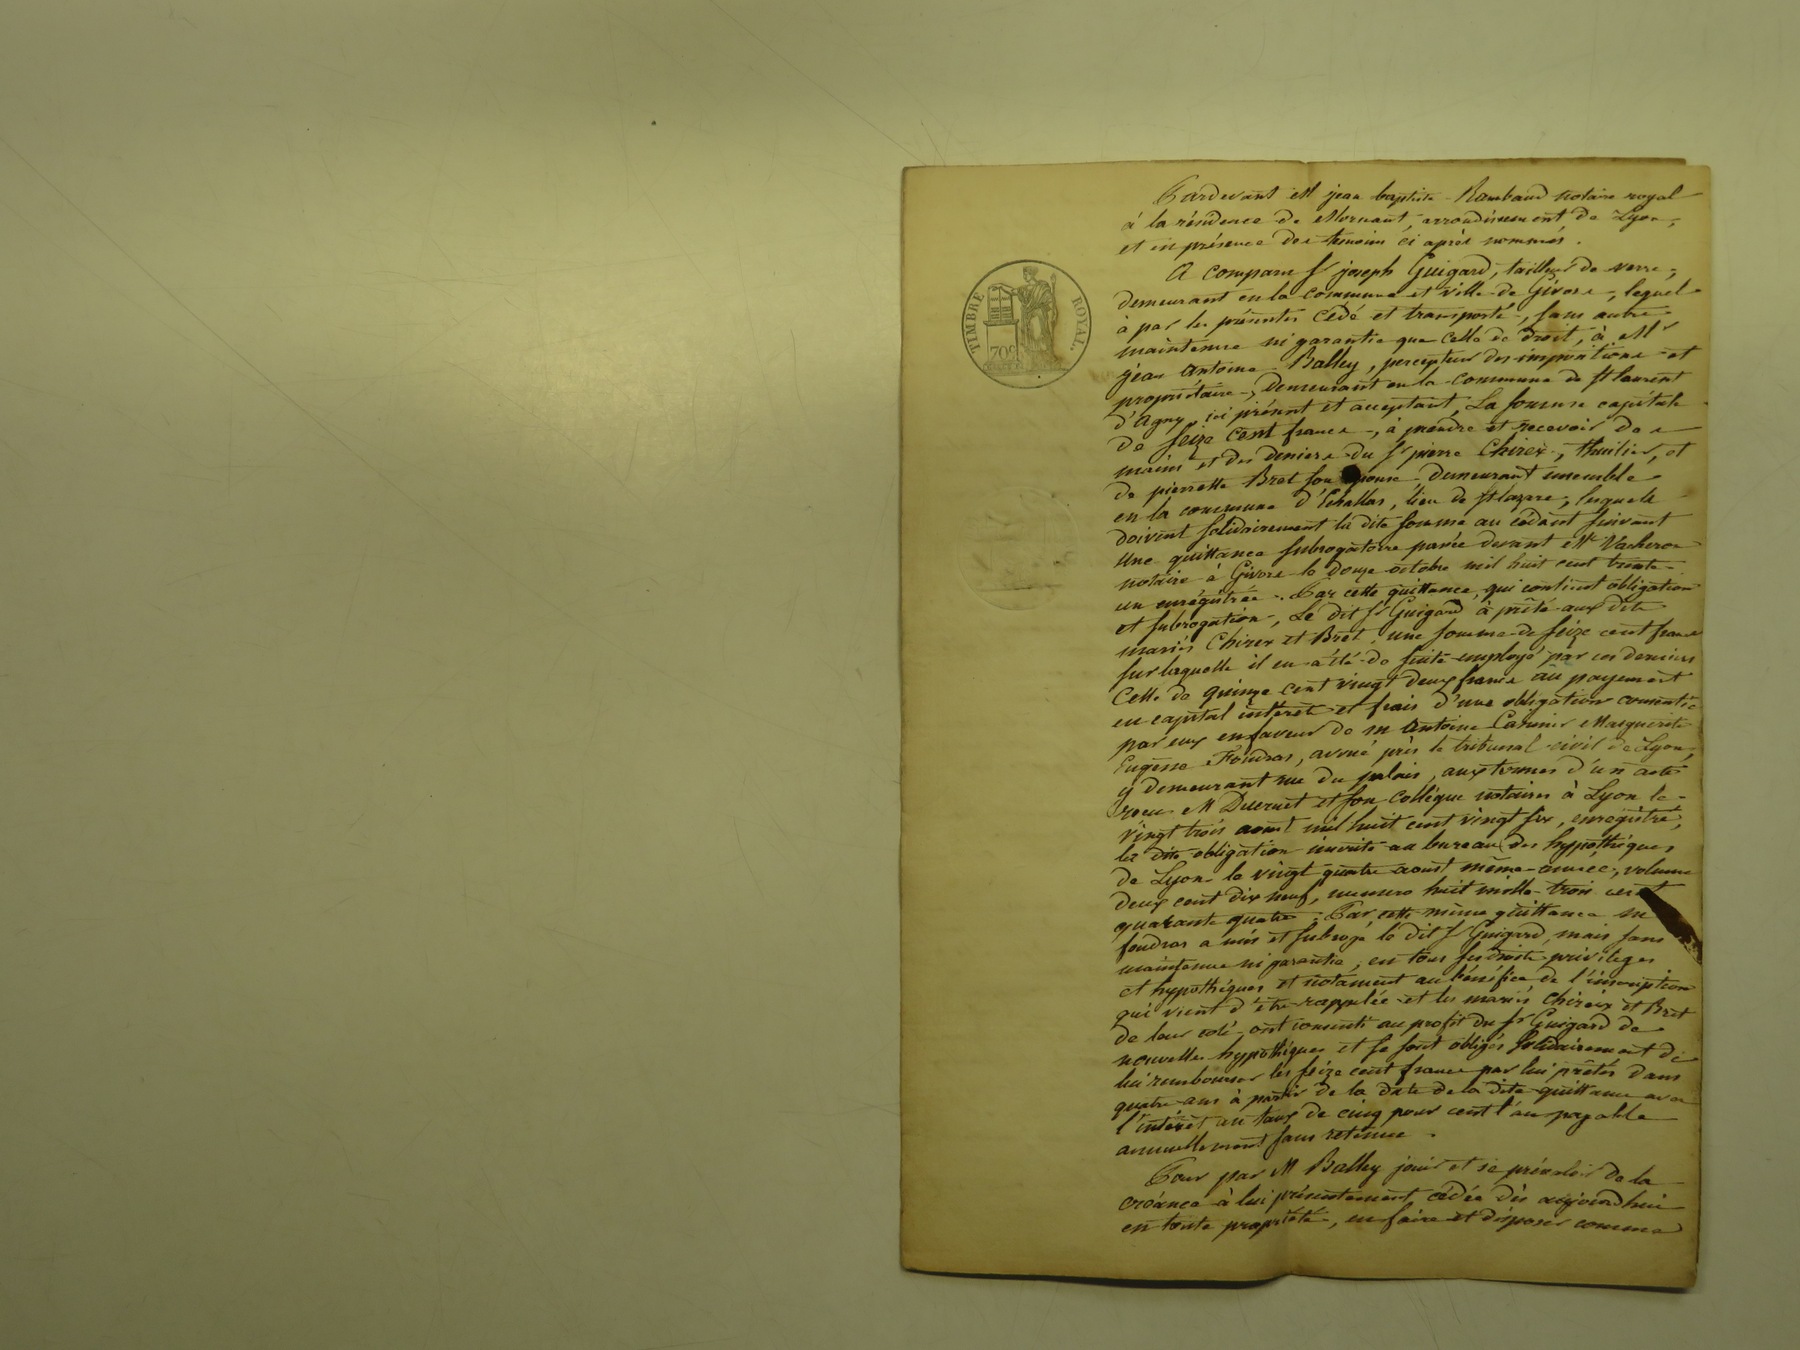 TIMBRE ROYAL
70c
Pardevant Me jean baptiste Rambaud notaire royal
à la résidence de Mornant, arrondissement de Lyon,
et en présence des temoins ci après nommés.
A comparu Sr joseph Guigard, tailleur de verre,
demeurant en la commune et ville de Givors, lequel
à par les présentes cédé et transporté, sans autre
maintenue ni garantie que celle de droit, à Mr
jéan Antoine Balley, percepteur des impositions et
propriétaire, demeurant en la commune de St laurent
d'Agny, ici présent et acceptant, La somme capitale
de seize cent francs, à prendre et recevoir des
mains et des deniers du Sr pierre Chirex, thuilier, et
de pierrette Bret son épouse, demeurant ensemble
en la commune d'Echallas, lieu de St lazare, lesquels
doivent solidairement la dite somme au cédant suivant
Une quittance subrogatoire passée devant Me Vacheron
notaire à Givors le douze octobre mil huit cent trente
un enrégistrée. Par cette quittance, qui contient obligation
et subrogation, Le dit Sr Guigard à prêté aux dits
mariés Chirex et Bret, une somme de seize cent francs
sur laquelle il en a été de suite employé par ces derniers
Celle de quinze cent vingt deux francs au payement
en capital intérêt et frais d'une obligation consentie
par eux en faveur de m Antoine Casimir Marguerite
Eugène Foudras, avoué près le tribunal civil de Lyon,
y demeurant rue du palais, aux termes d'un acte
reçu Me Ducruet et son collègue notaires à Lyon le
vingt trois aout mil huit cent vingt six, enregistré,
la dite obligation inscrite au bureau des hypothéques
de Lyon le vingt quatre aout, même année, volume
deux cent dix neuf, numéro huit mille trois cent
quarante quatre. Par cette même quittance m
foudras a mis et subrogé le dit Sr Guigard, mais sans
maintenue ni garantie, en tous ses droits privileges
et hypothéques et notament au bénéfice de l'inscription
qui vient d'être rappelée et les mariés Chirex et Bret
de leur coté ont consenti au profit du Sr Guigard de
nouvelles hypothéques et se sont obligés solidairement de
lui rembourser les seize cent francs par lui prêtés dans
quatre ans à partir de la date de la dite quittance avec
l'intérêt au taux de cinq pour cent l'an payable
annuellement sans retenue.
Pour par M Balley jouir et se prévaloir de la
créance à lui présentement cédée dès aujourd'hui
en toute propriété, en faire et disposer comme